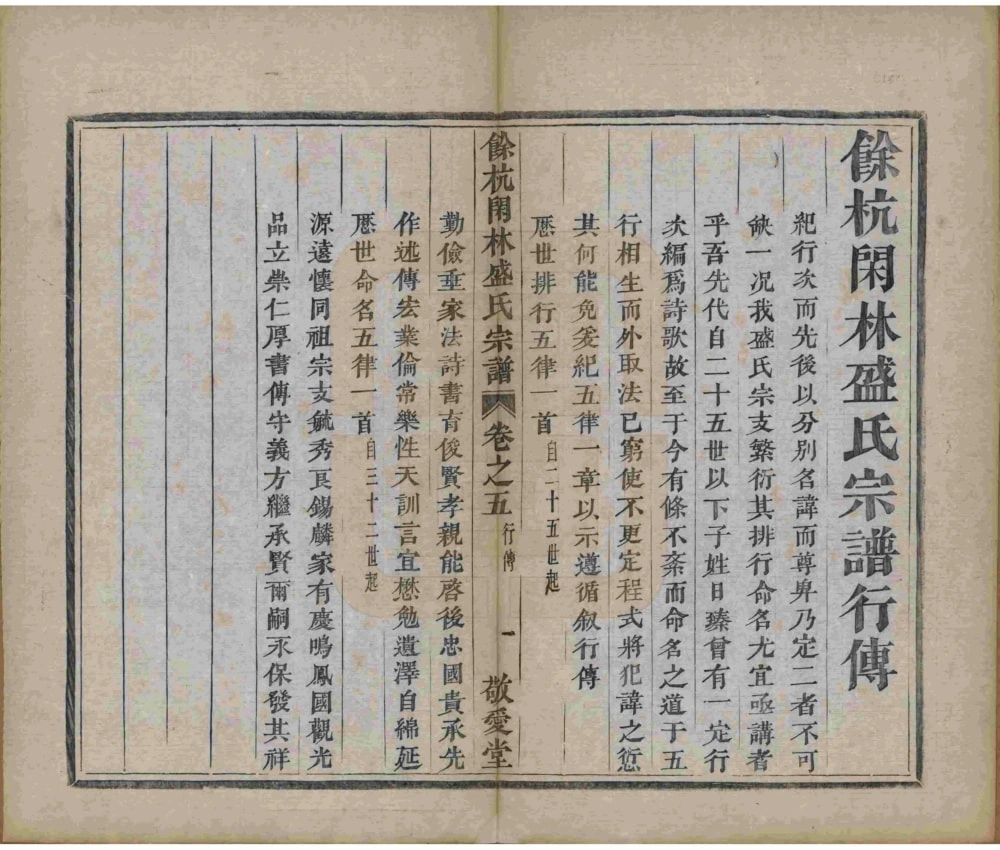 餘杭閑林盛氏宗譜行傳
紀行次而先後以分別名諱而尊卑乃定二者不可
缺一况我盛氏宗支繁衍其排行命名尤宜亟講者
乎吾先代自二十五世以下子姓日蓁曾有一定行
次編爲詩歌故至于今有條不紊而命名之道于五
行相生而外取法已窮使不更定程式將犯諱之愆
其何能免爰紀五律一章以示遵循叙行傳
厯世排行五律一首自二十五世起
餘杭閑林盛氏宗譜 卷之五 行傳 一 敬愛堂
勤儉垂家法詩書育俊賢孝親能啓後忠國貴承先
作述傳宏業倫常樂性天訓言宜懋勉遺澤自綿延
厯世命名五律一首自三十二世起
源遠懷同祖宗支毓秀良錫麟家有慶鳴鳳國觀光
品立崇仁厚書傳守義方繼承賢爾嗣永保發其祥